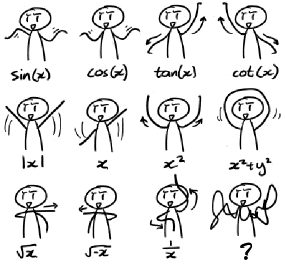 sin(x) cos(x) tan(x) cot(x)
|x| x x² x²+y²
√x √-x 1/x ?